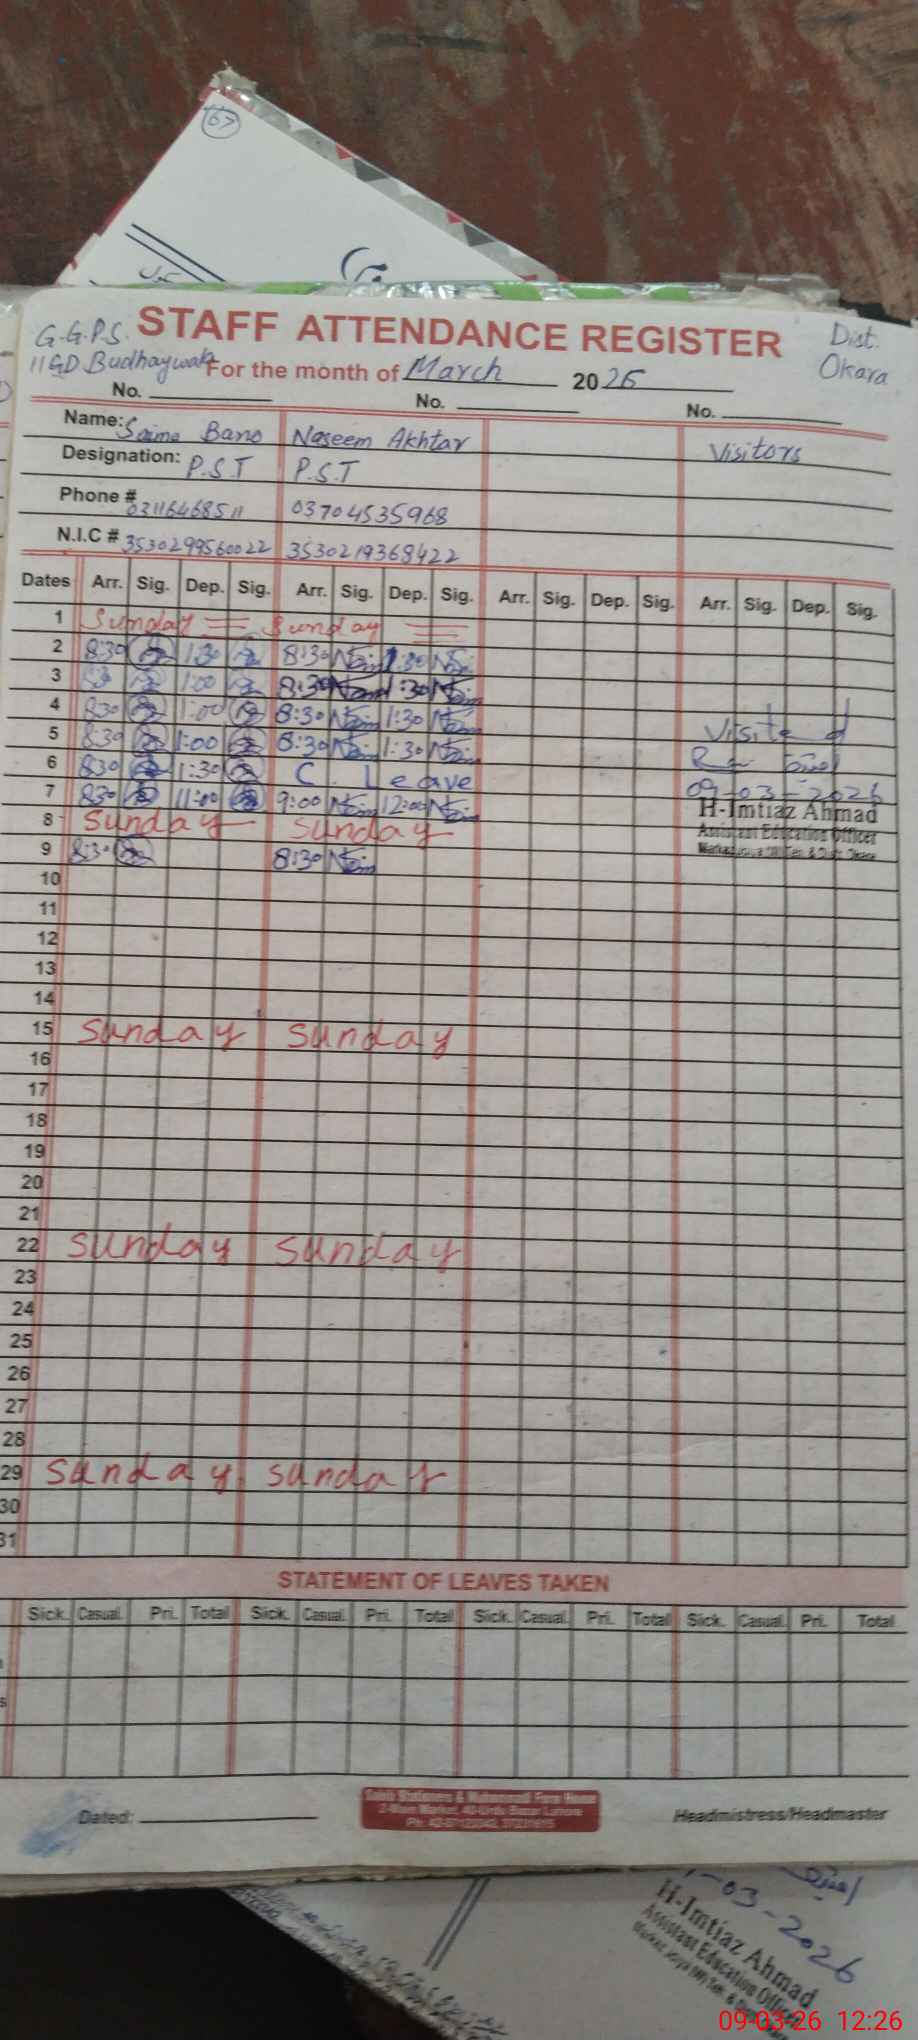 67
G.G.P.S. STAFF ATTENDANCE REGISTER Dist.
11GD Budhaywala For the month of March 2026 Okara
No. No. No.
Name: Saima Bano Naseem Akhtar Visitors
Designation: P.S.T P.S.T
Phone # 03116468511 03704535968
N.I.C # 3530299560022 3530219368422
Dates Arr. Sig. Dep. Sig. Arr. Sig. Dep. Sig. Arr. Sig. Dep. Sig. Arr. Sig. Dep. Sig.
1 Sunday Sunday
2 8:30 1:30 8:30 1:30
3 8:30 1:00 8:30 1:30
4 8:30 1:00 8:30 1:30
5 8:30 1:00 8:30 1:30 Visited
6 8:30 1:30 C. Leave
7 8:30 11:00 9:00 12:00 09-03-2026
8 Sunday Sunday H-Imtiaz Ahmad
Assistant Education Officer
9 8:30 8:30
10
11
12
13
14
15 Sunday Sunday
16
17
18
19
20
21
22 Sunday Sunday
23
24
25
26
27
28
29 Sunday Sunday
30
31
STATEMENT OF LEAVES TAKEN
Sick. Casual. Pri. Total Sick. Casual. Pri. Total Sick. Casual. Pri. Total Sick. Casual. Pri. Total
Dated: Headmistress/Headmaster
2-Main Market, 40-Urdu Bazar Lahore
-03-2026
H-Imtiaz Ahmad
Assistant Education Officer
09-03-26 12:26